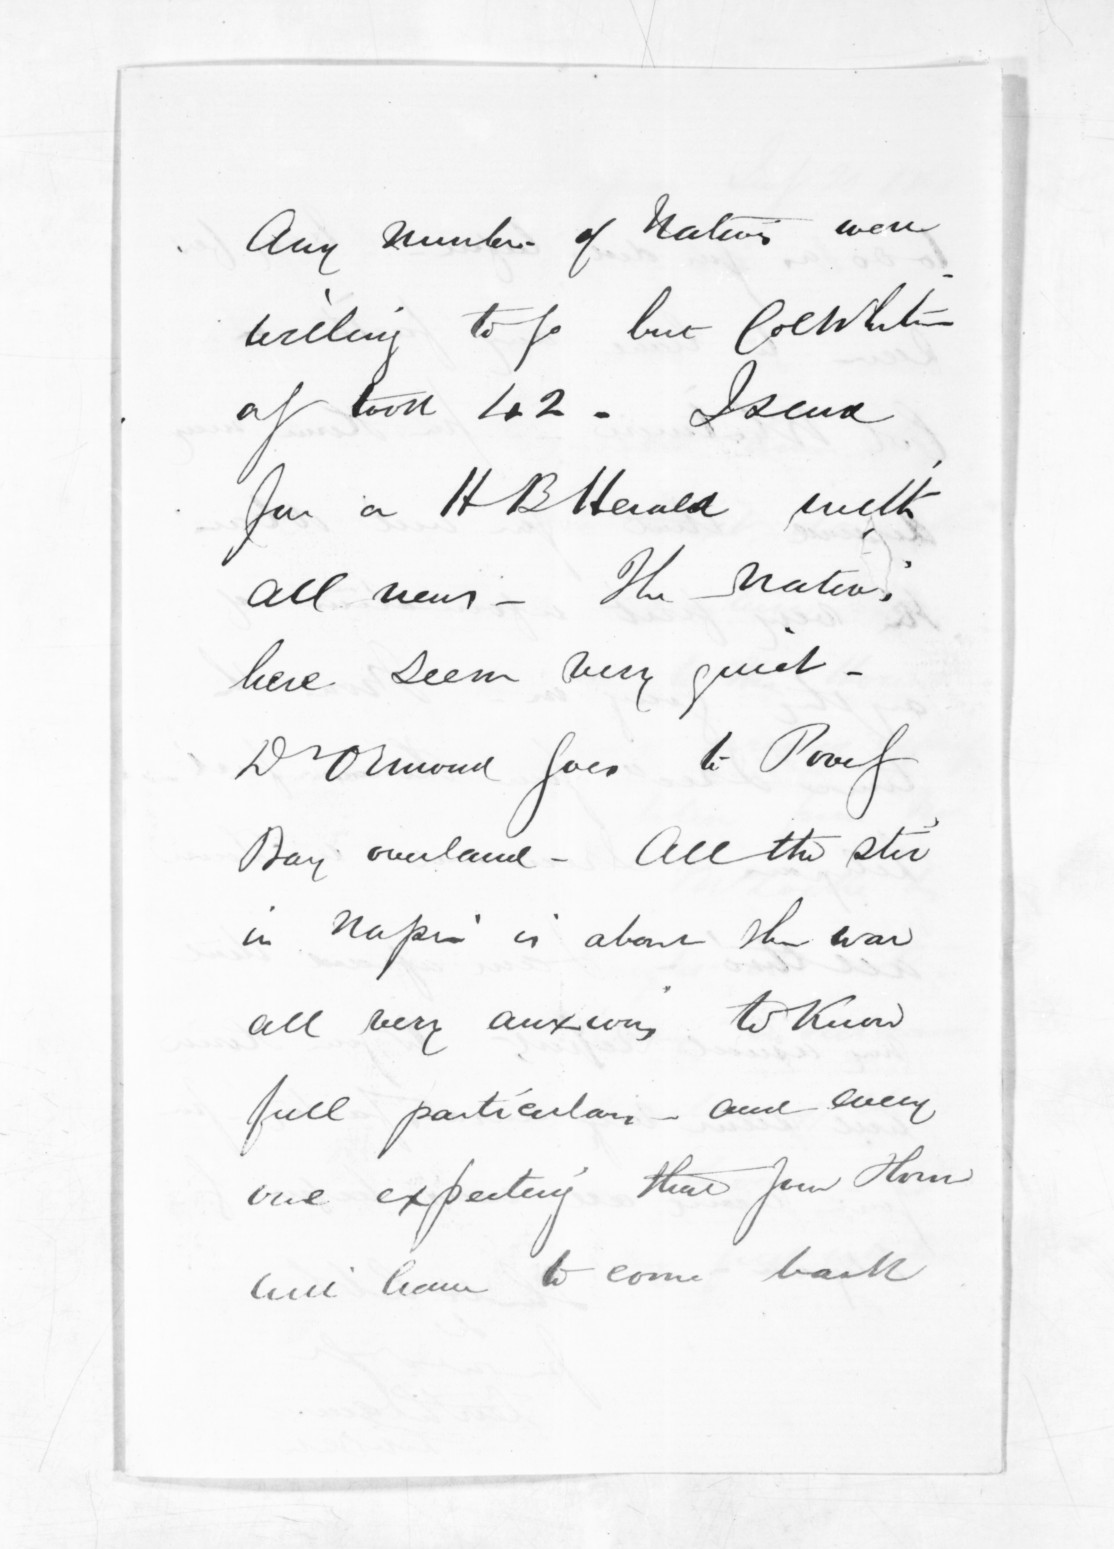 Any number of Natives were
willing to go but Col Whit
took 42 - I send
for a HB Herald with
all news - The Natives
here seem very quiet -
Dr Ormond goes to Povey
Bay overland - All the stir
in Napier is about the war
all very anxious to Know
full particulars - and every
one expecting that you
will have to come back